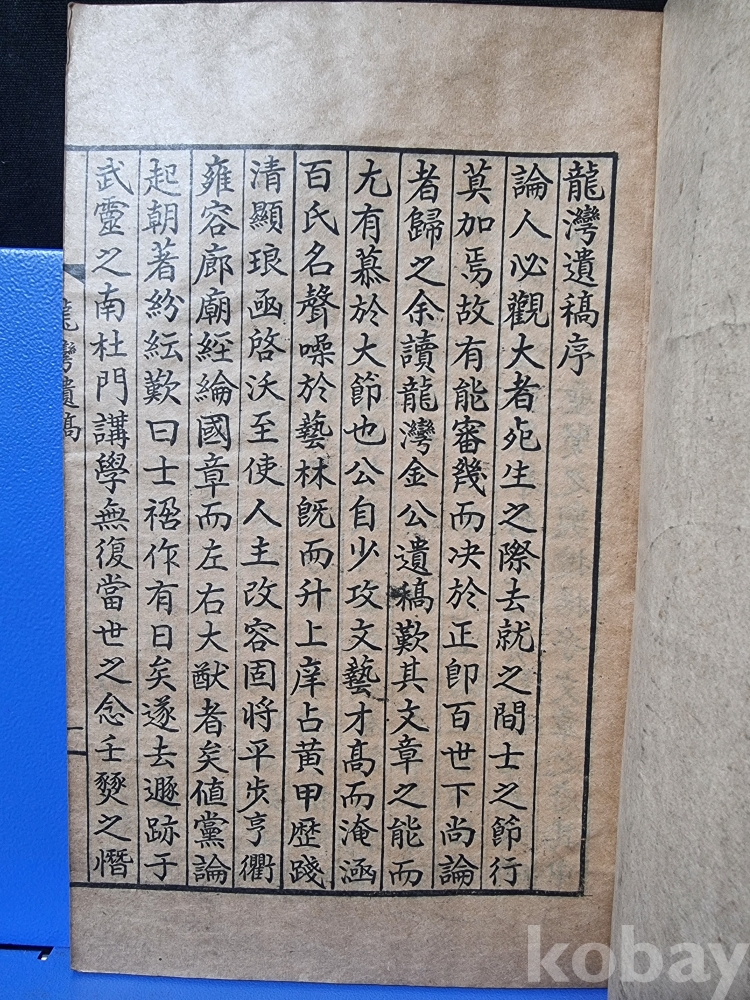 龍灣遺稿序
論人必觀大者死生之際去就之間士之節行
莫加焉故有能審幾而决於正卽百世下尚論
者歸之余讀龍灣金公遺稿歎其文章之能而
尤有慕於大節也公自少攻文藝才高而淹涵
百氏名聲噪於藝林旣而升上庠占黃甲歷踐
清顯琅函啓沃至使人主改容固將平步亨衢
雍容廊廟經綸國章而左右大猷者矣値黨論
起朝著紛紜歎曰士禍作有日矣遂去遯跡于
武靈之南杜門講學無復當世之念壬燹之憯
龍灣遺稿
一
kobay